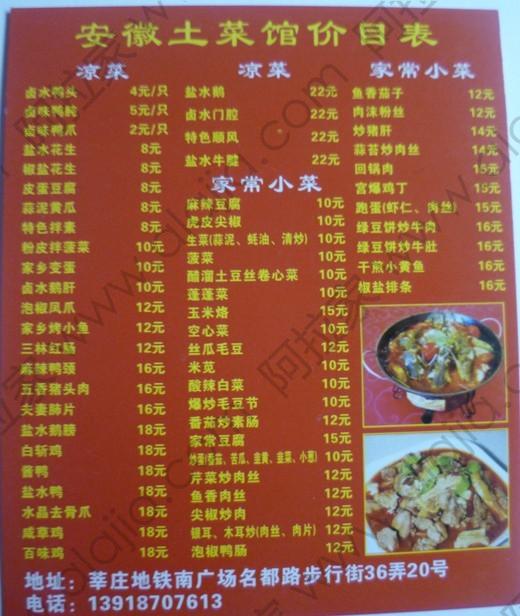 安徽土菜馆价目表
凉菜
卤水鸭头 4元/只
卤味鸭肫 5元/只
卤味鸭爪 2元/只
盐水花生 8元
椒盐花生 8元
皮蛋豆腐 8元
蒜泥黄瓜 8元
特色拌素 8元
粉皮拌菠菜 10元
家乡变蛋 10元
卤水鹅肝 10元
泡椒凤爪 12元
家乡烤小鱼 12元
三林红肠 12元
麻辣鸭颈 16元
五香猪头肉 16元
夫妻肺片 16元
盐水鹅膀 18元
白斩鸡 18元
酱鸭 18元
盐水鸭 18元
水晶去骨爪 18元
咸草鸡 18元
百味鸡 18元
凉菜
盐水鹅 22元
卤水门腔 22元
特色顺风 22元
盐水牛腱 22元
家常小菜
麻辣豆腐 10元
虎皮尖椒 10元
生菜(蒜泥、蚝油、清炒) 10元
菠菜 10元
醋溜土豆丝卷心菜 10元
蓬蓬菜 10元
玉米烙 15元
空心菜 10元
丝瓜毛豆 12元
米苋 10元
酸辣白菜 10元
爆炒毛豆节 10元
番茄炒素肠 12元
家常豆腐 15元
炒蛋(番茄、苦瓜、韭黄、韭菜、小葱) 10元
芹菜炒肉丝 12元
鱼香肉丝 12元
尖椒炒肉 12元
银耳、木耳炒(肉丝、肉片) 12元
泡椒鸭肠 12元
家常小菜
鱼香茄子 12元
肉沫粉丝 12元
炒猪肝 14元
蒜苔炒肉丝 14元
回锅肉 15元
宫爆鸡丁 15元
跑蛋(虾仁、肉丝) 15元
绿豆饼炒牛肉 16元
绿豆饼炒牛肚 16元
干煎小黄鱼 16元
椒盐排条 16元
地址：莘庄地铁南广场名都路步行街36弄20号
电话：13918707613
阿拉家 www.alajia.com